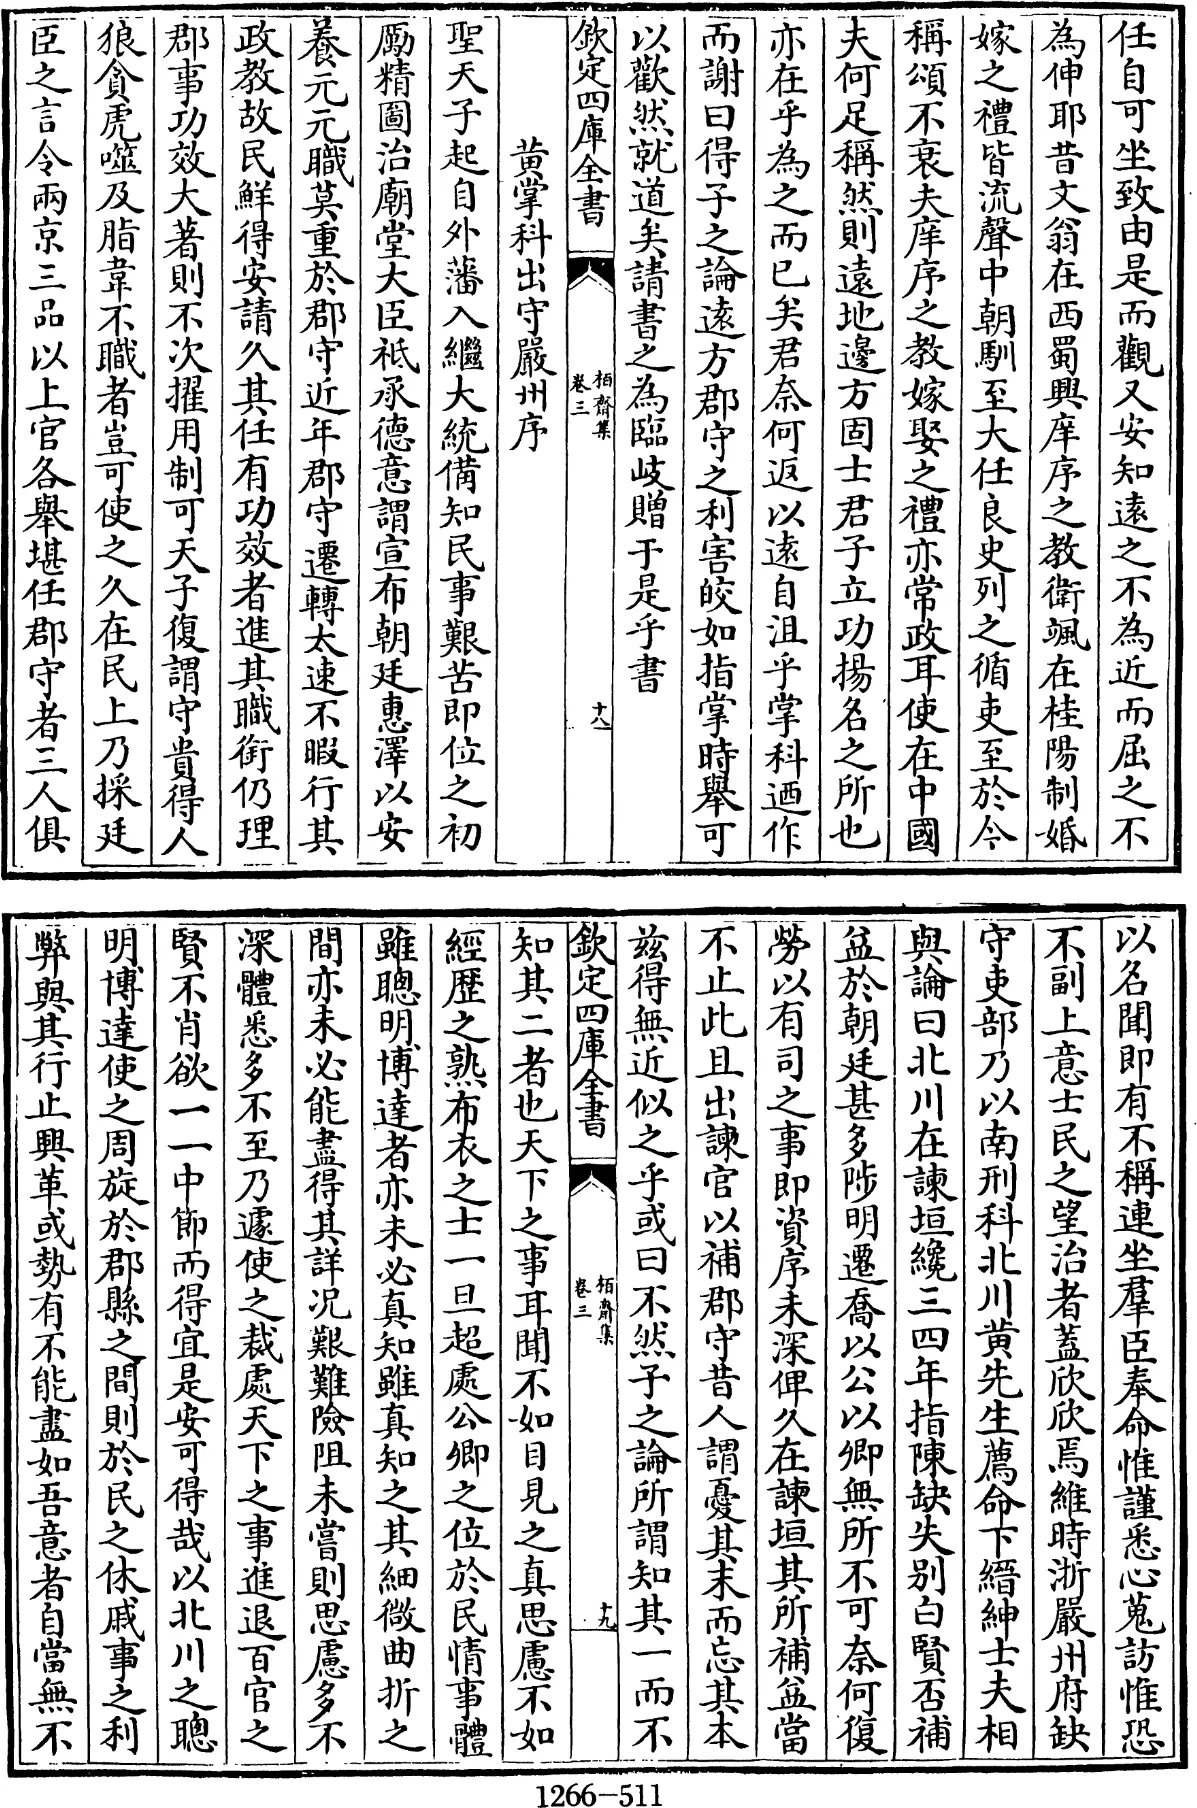 任自可坐致由是而觀又安知遠之不為近而屈之不
為伸耶昔文翁在西蜀興庠序之教衛颯在桂陽制婚
嫁之禮皆流聲中朝馴至大任良史列之循吏至於今
稱頌不衰夫庠序之教嫁娶之禮亦常政耳使在中國
夫何足稱然則遠地邊方固士君子立功揚名之所也
亦在乎為之而已矣君奈何返以遠自沮乎掌科迺作
而謝曰得子之論遠方郡守之利害皎如指掌時舉可
以歡然就道矣請書之為臨岐贈于是乎書
欽定四庫全書
栢齋集
卷三
十八
黄掌科出守嚴州序
聖天子起自外藩入繼大統備知民事艱苦即位之初
勵精圖治廟堂大臣祗承德意謂宣布朝廷惠澤以安
養元元職莫重於郡守近年郡守遷轉太速不暇行其
政教故民鮮得安請久其任有功效者進其職銜仍理
郡事功效大著則不次擢用制可天子復謂守貴得人
狼貪虎噬及脂韋不職者豈可使之久在民上乃採廷
臣之言令兩京三品以上官各舉堪任郡守者三人俱
以名聞即有不稱連坐羣臣奉命惟謹悉心蒐訪惟恐
不副上意士民之望治者蓋欣欣焉維時浙嚴州府缺
守吏部乃以南刑科北川黄先生薦命下縉紳士夫相
與論曰北川在諫垣纔三四年指陳缺失别白賢否補
益於朝廷甚多陟明遷喬以公以卿無所不可奈何復
勞以有司之事即資序未深俾久在諫垣其所補益當
不止此且出諫官以補郡守昔人謂憂其末而忘其本
兹得無近似之乎或曰不然子之論所謂知其一而不
欽定四庫全書
栢齋集
卷三
十九
知其二者也天下之事耳聞不如目見之真思慮不如
經歷之熟布衣之士一旦超處公卿之位於民情事體
雖聰明博達者亦未必真知雖真知之其細微曲折之
間亦未必能盡得其詳况艱難險阻未嘗則思慮多不
深體悉多不至乃遽使之裁處天下之事進退百官之
賢不肖欲一一中節而得宜是安可得哉以北川之聰
明博達使之周旋於郡縣之間則於民之休戚事之利
弊與其行止興革或勢有不能盡如吾意者自當無不
1266—511